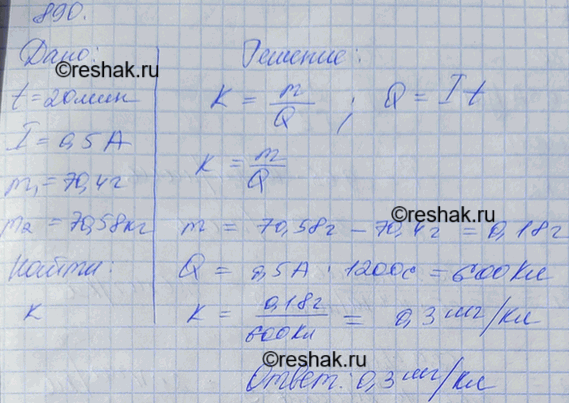 890.
Дано: Решение:
©reshak.ru
t = 20 мин K = m/Q ; Q = It
I = 0,5 А K = m/Q
m₁ = 70,4 г
m₂ = 70,58 кг m = 70,58 г − 70,4 г = 0,18 г
Найти: Q = 0,5 А · 1200 с = 600 Кл
K K = 0,18 г/600 Кл = 0,3 мг/Кл
©reshak.ru
Ответ: 0,3 мг/Кл